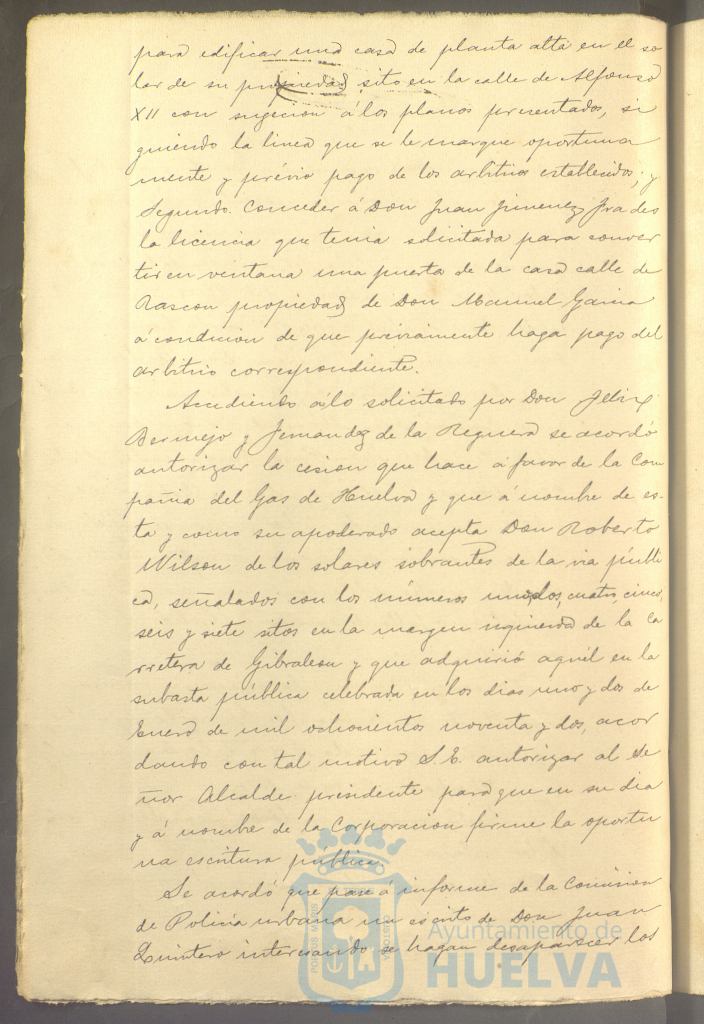 para edificar una casa de planta alta en el so
lar de su propiedad sito en la calle de Alfonso
XII con sugecion á los planos presentados, si
guiendo la linea que se le marque oportuna
mente y prévio pago de los arbitrios establecidos; y
Segundo. Conceder á Don Juan Jimenez Prades
la licencia que tenia solicitada para conver
tir en ventana una puerta de la casa calle de
Rascon propiedad de Don Manuel Garcia
á condicion de que préviamente haga pago del
arbitrio correspondiente.
Accediendo á lo solicitado por Don Felix
Bermejo y Fernandez de la Reguera se acordó
autorizar la cesion que hace á favor de la Com
pañia del Gas de Huelva y que á nombre de es-
ta y como su apoderado acepta Don Roberto
Wilson de los solares sobrantes de la via públi
ca, señalados con los números uno, dos, cuatro, cinco,
seis y siete sitos en la margen izquierda de la Ca
rretera de Gibraleon y que adquirió aquél en la
subasta pública celebrada en los dias uno y dos de
Enero de mil ochocientos noventa y dos, acor
dando con tal motivo S. E. autorizar al Se
ñor Alcalde presidente para que en su dia
y á nombre de la Corporacion firme la oportu
na escritura pública.
Se acordó que pase á informe de la Comision
de Policia urbana un escrito de Don Juan
Quintero interesando se hagan desaparecer los
PORTUS MARIS
CUSTODIA
Ayuntamiento de
HUELVA